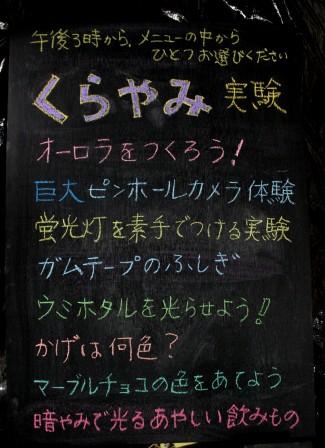 午後3時から、メニューの中から
ひとつお選びください
くらやみ実験
オーロラをつくろう!
巨大ピンホールカメラ体験
蛍光灯を素手でつける実験
ガムテープのふしぎ
ウミホタルを光らせよう!!
かげは何色?
マーブルチョコの色をあてよう
暗やみで光るあやしい飲みもの